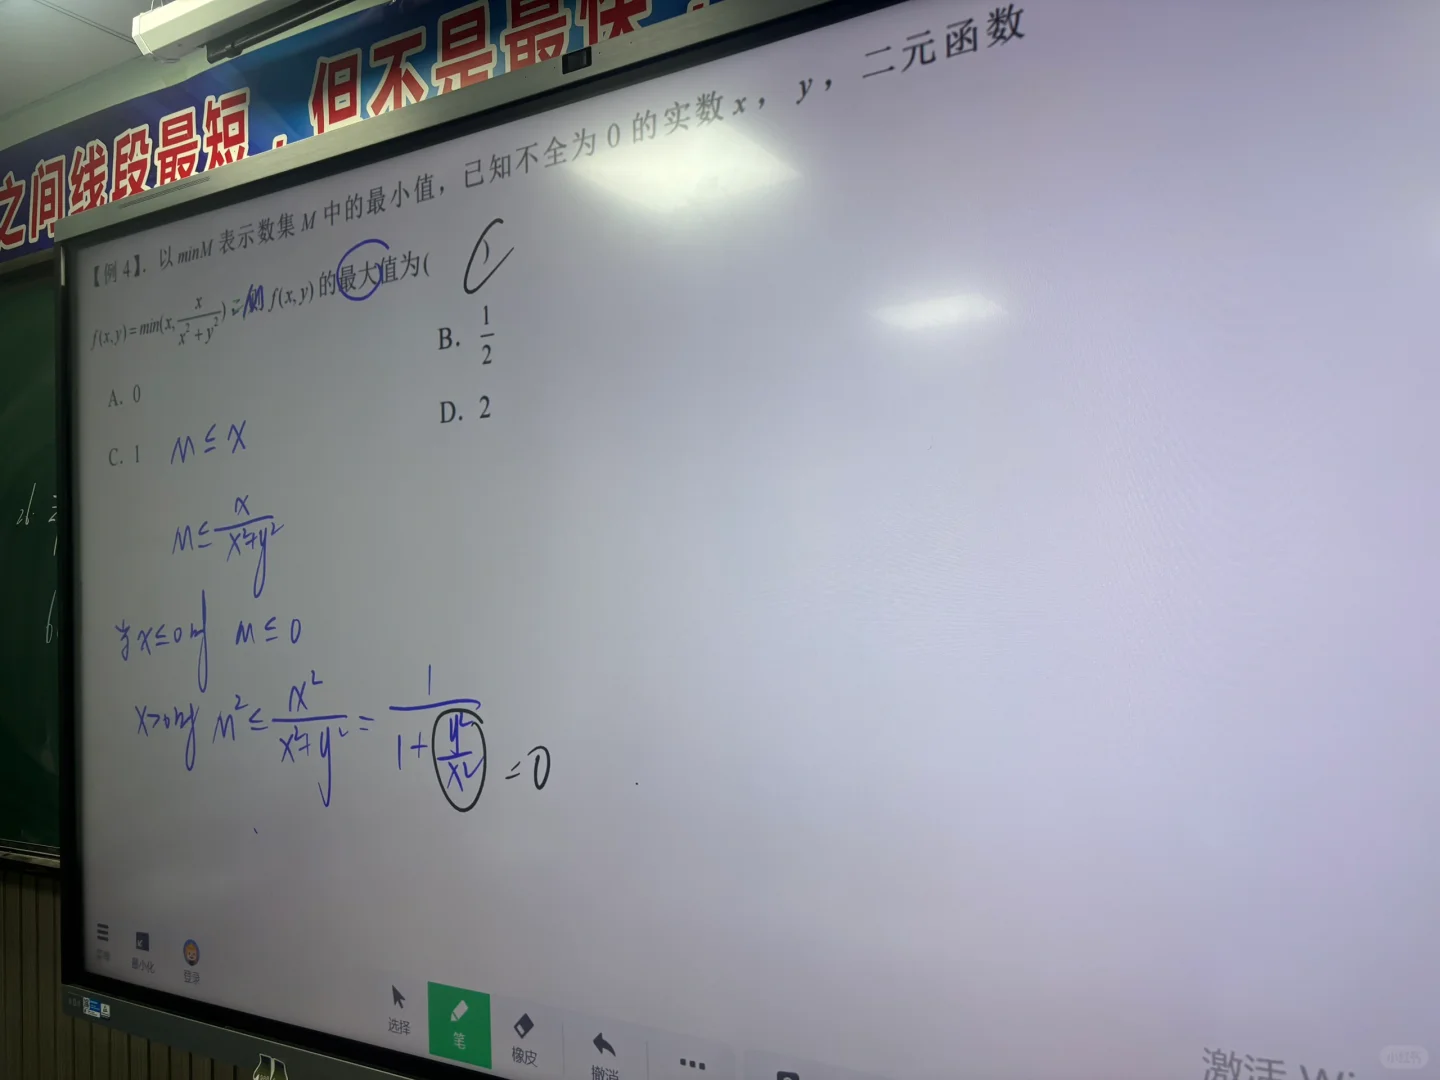 之间线段最短，但不是最快
【例 4】．以 minM 表示数集 M 中的最小值，已知不全为 0 的实数 x，y，二元函数
f(x,y)=min(x, x/(x²+y²)) 则 f(x,y) 的最大值为(
A. 0
B. 1/2
C. 1
D. 2
M ≤ x
M ≤ x/(x²+y²)
当 x≤0时 M ≤ 0
x>0时 M² ≤ x²/(x²+y²) = 1/(1+y²/x²) = 0
26.
6
最小化
登录
选择
笔
橡皮
撤消
激活 Wi
小红书